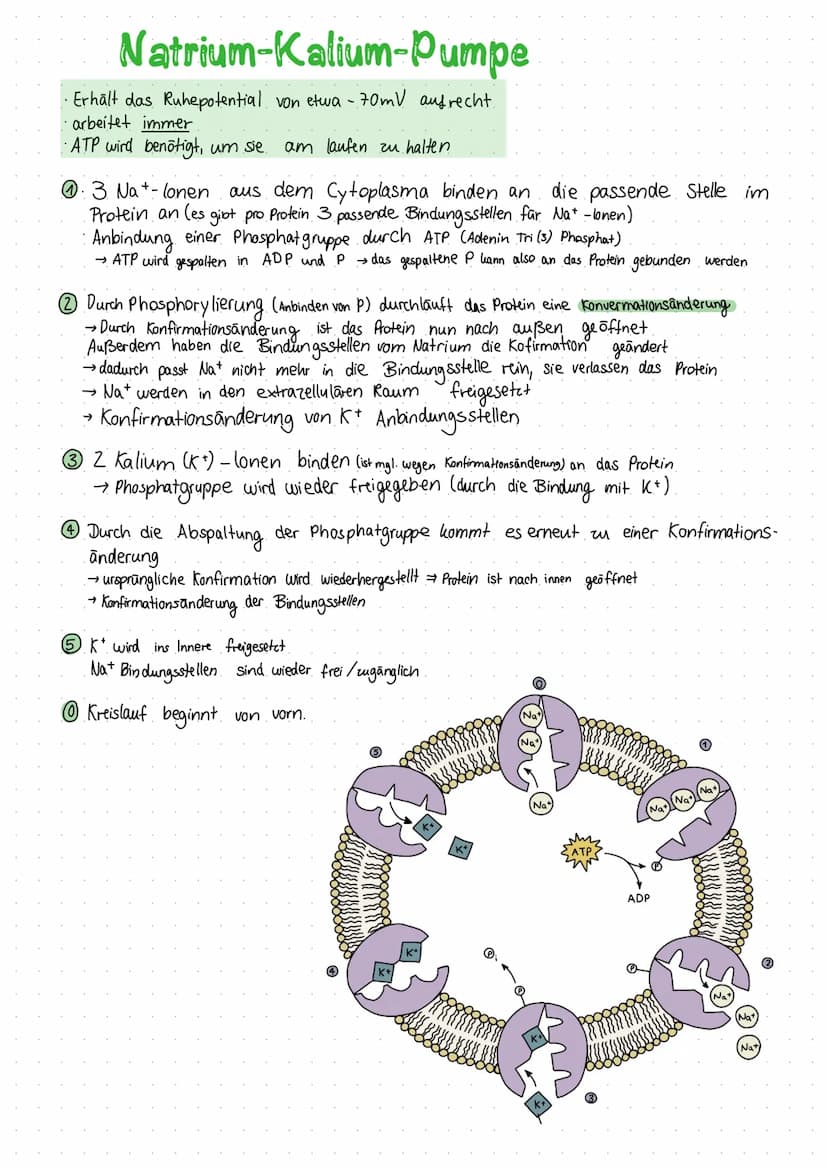 Natrium-Kalium-Pumpe
· Erhält das Ruhepotential von etwa -70mV aufrecht
· arbeitet immer
· ATP wird benötigt, um sie am laufen zu halten
① · 3 Na⁺-Ionen aus dem Cytoplasma binden an die passende Stelle im
Protein an (es gibt pro Protein 3 passende Bindungsstellen für Na⁺-Ionen)
· Anbindung einer Phosphatgruppe durch ATP (Adenin Tri(3) Phosphat)
→ ATP wird gespalten in ADP und P → das gespaltene P kann also an das Protein gebunden werden
② Durch Phosphorylierung (Anbinden von P) durchläuft das Protein eine Konvermationsänderung
→ Durch Konfirmationsänderung ist das Protein nun nach außen geöffnet
Außerdem haben die Bindungsstellen vom Natrium die Kofirmation geändert
→ dadurch passt Na⁺ nicht mehr in die Bindungsstelle rein, sie verlassen das Protein
→ Na⁺ werden in den extrazellulären Raum freigesetzt
→ Konfirmationsänderung von K⁺ Anbindungsstellen
③ 2 Kalium (K⁺)-Ionen binden (ist mgl. wegen Konfirmationsänderung) an das Protein
→ Phosphatgruppe wird wieder freigegeben (durch die Bindung mit K⁺)
④ Durch die Abspaltung der Phosphatgruppe kommt es erneut zu einer Konfirmations-
änderung
→ ursprüngliche Konfirmation wird wiederhergestellt ⇒ Protein ist nach innen geöffnet
→ Konfirmationsänderung der Bindungsstellen
⑤ K⁺ wird ins Innere freigesetzt
Na⁺ Bindungsstellen sind wieder frei/zugänglich
⓪ Kreislauf beginnt von vorn.
⓪
Na⁺
Na⁺
Na⁺
①
Na⁺ Na⁺ Na⁺
ATP
P
ADP
⑤
K⁺
K⁺
②
P
Na⁺
Na⁺
Na⁺
④
K⁺
K⁺
Pᵢ
P
K⁺
K⁺
③